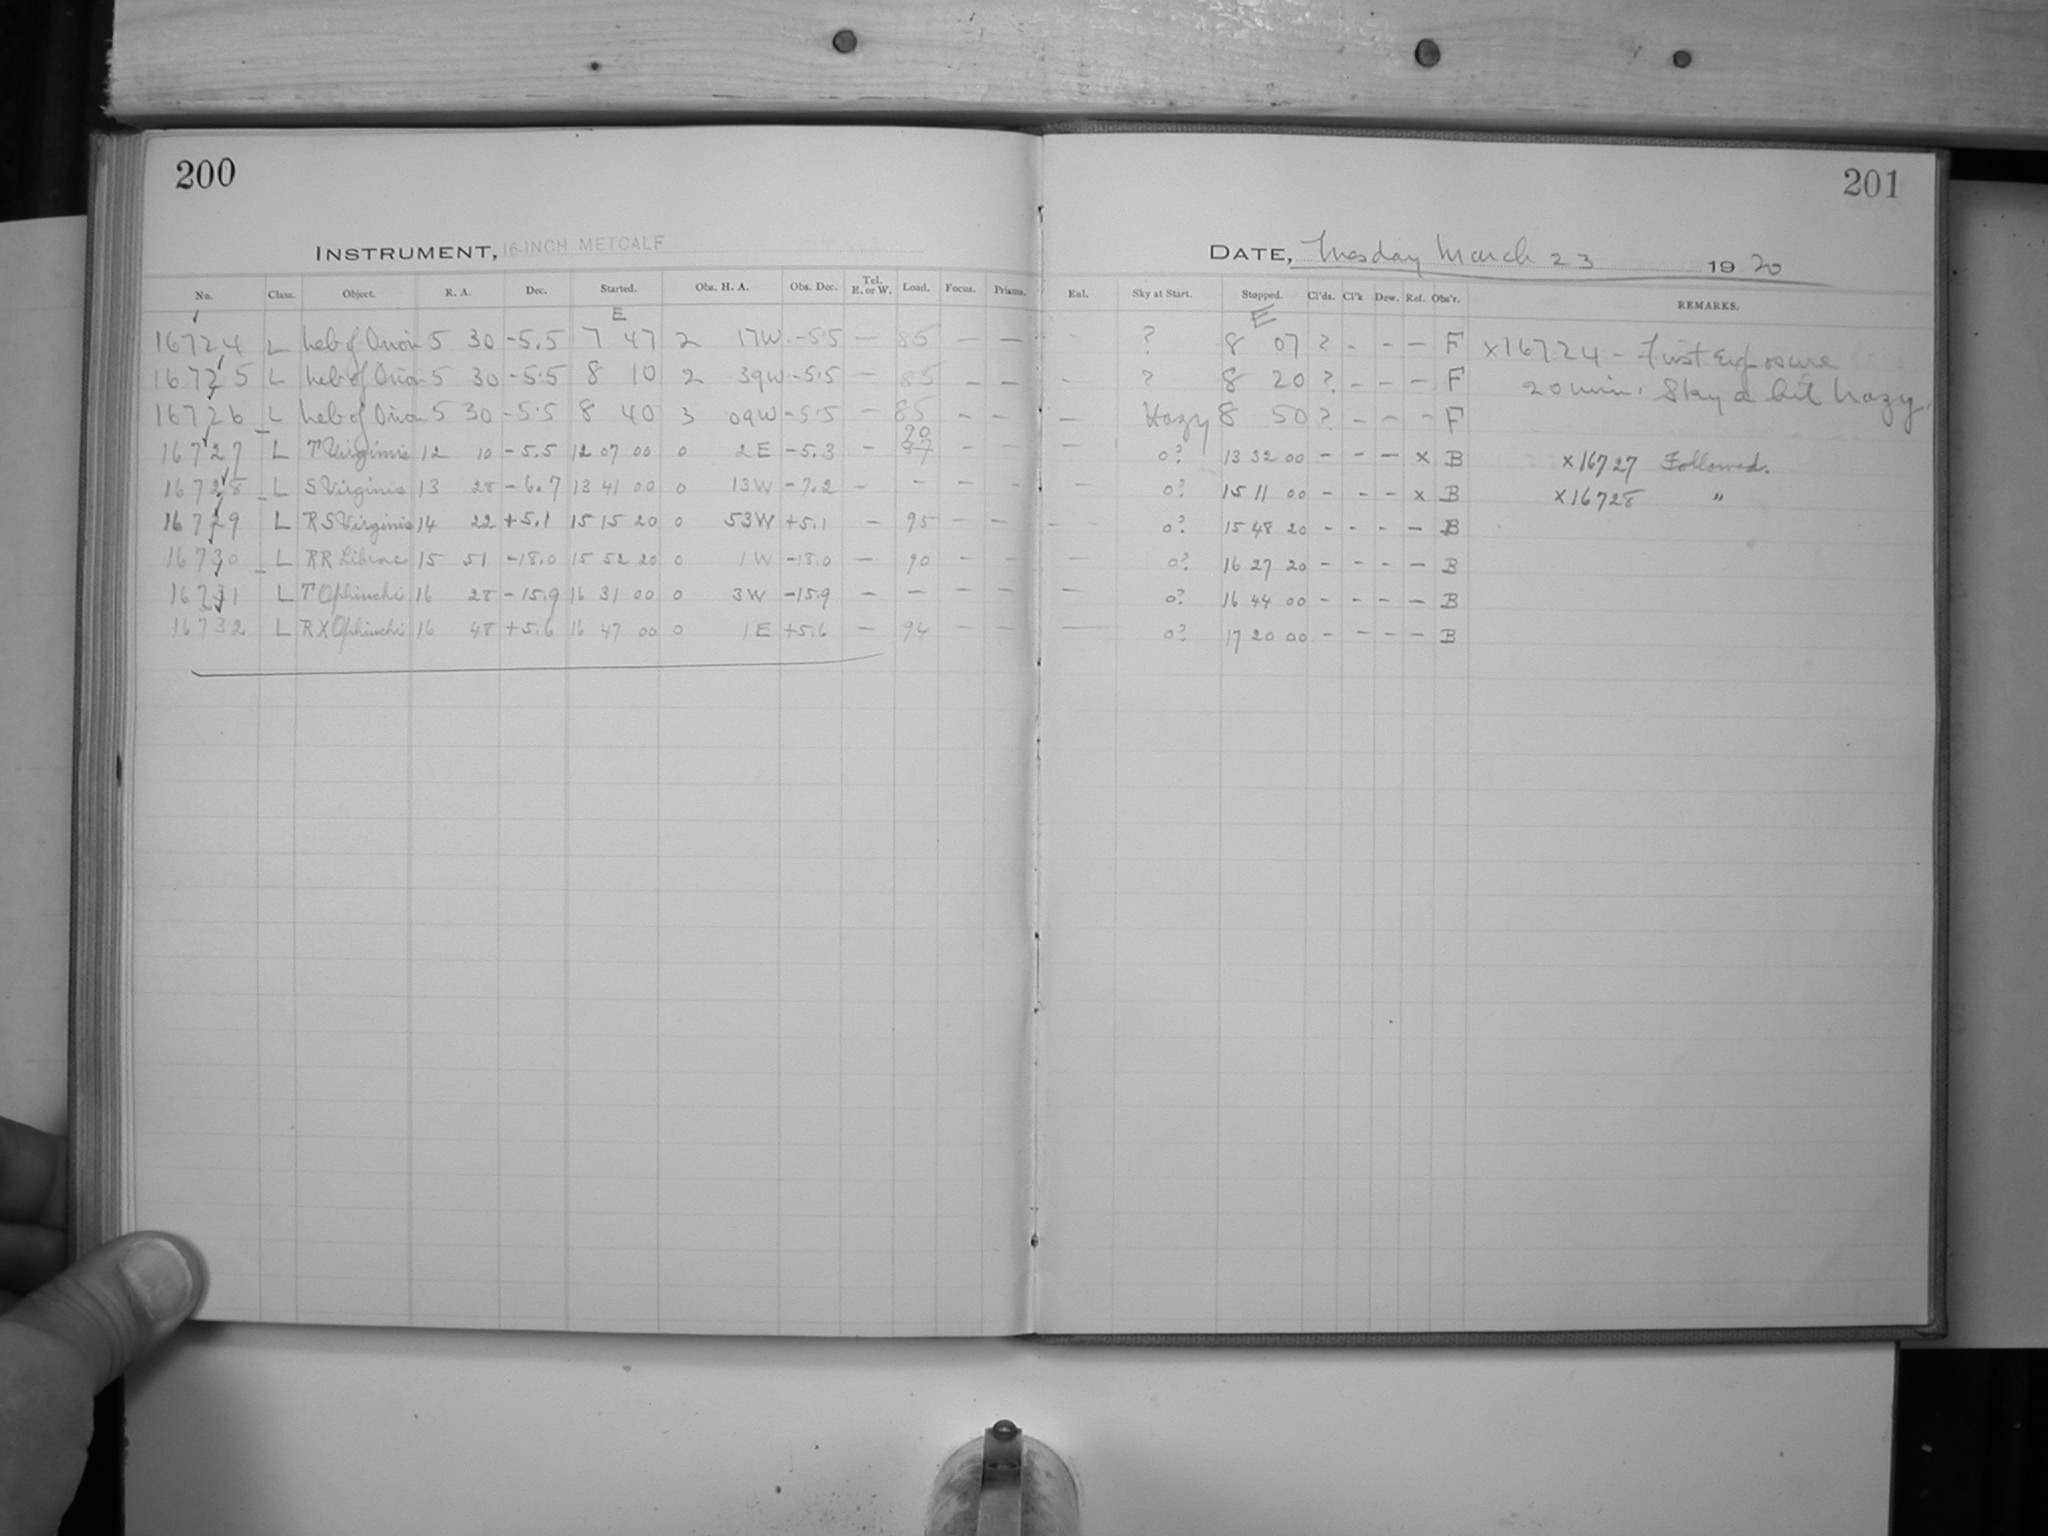 200
INSTRUMENT, 16-INCH METCALF
No. Class. Object. R. A. Dec. Started. Obs. H. A. Obs. Dec. Tel. E. or W. Load. Focus. Prisms.
E
16724 L Neb of Orion 5 30 -5.5 7 47 2 17W -5.5 — 85 — —
16725 L Neb of Orion 5 30 -5.5 8 10 2 39W -5.5 — 85 — —
16726 L Neb of Orion 5 30 -5.5 8 40 3 09W -5.5 — 85 — —
16727 L T Virginis 12 10 -5.5 12 07 00 0 2E -5.3 — 90 — —
16728 L S Virginis 13 28 -6.7 13 41 00 0 13W -7.2 — — — —
16729 L RS Virginis 14 22 +5.1 15 15 20 0 53W +5.1 — 95 — —
16730 L RR Librae 15 51 -18.0 15 52 20 0 1W -18.0 — 90 — —
16731 L T Ophiuchi 16 28 -15.9 16 31 00 0 3W -15.9 — — — —
16732 L RX Ophiuchi 16 48 +5.6 16 47 00 0 1E +5.6 — 94 — —
201
DATE, Tuesday March 23 1920
Enl. Sky at Start. Stopped. Cl'ds. Cl'k Dew. Ref. Obs'r. REMARKS.
E
- ? 8 07 ? - - — F x16724 - First Exposure
- ? 8 20 ? - - - F 20 min. Sky a bit hazy.
— Hazy 8 50 ? - - - F
— 0? 13 32 00 - - - x B x16727 Followed.
- 0? 15 11 00 - - - x B x16728 "
- 0? 15 48 20 - - - — B
— 0? 16 27 20 - - - — B
— 0? 16 44 00 - - - — B
— 0? 17 20 00 - - - — B